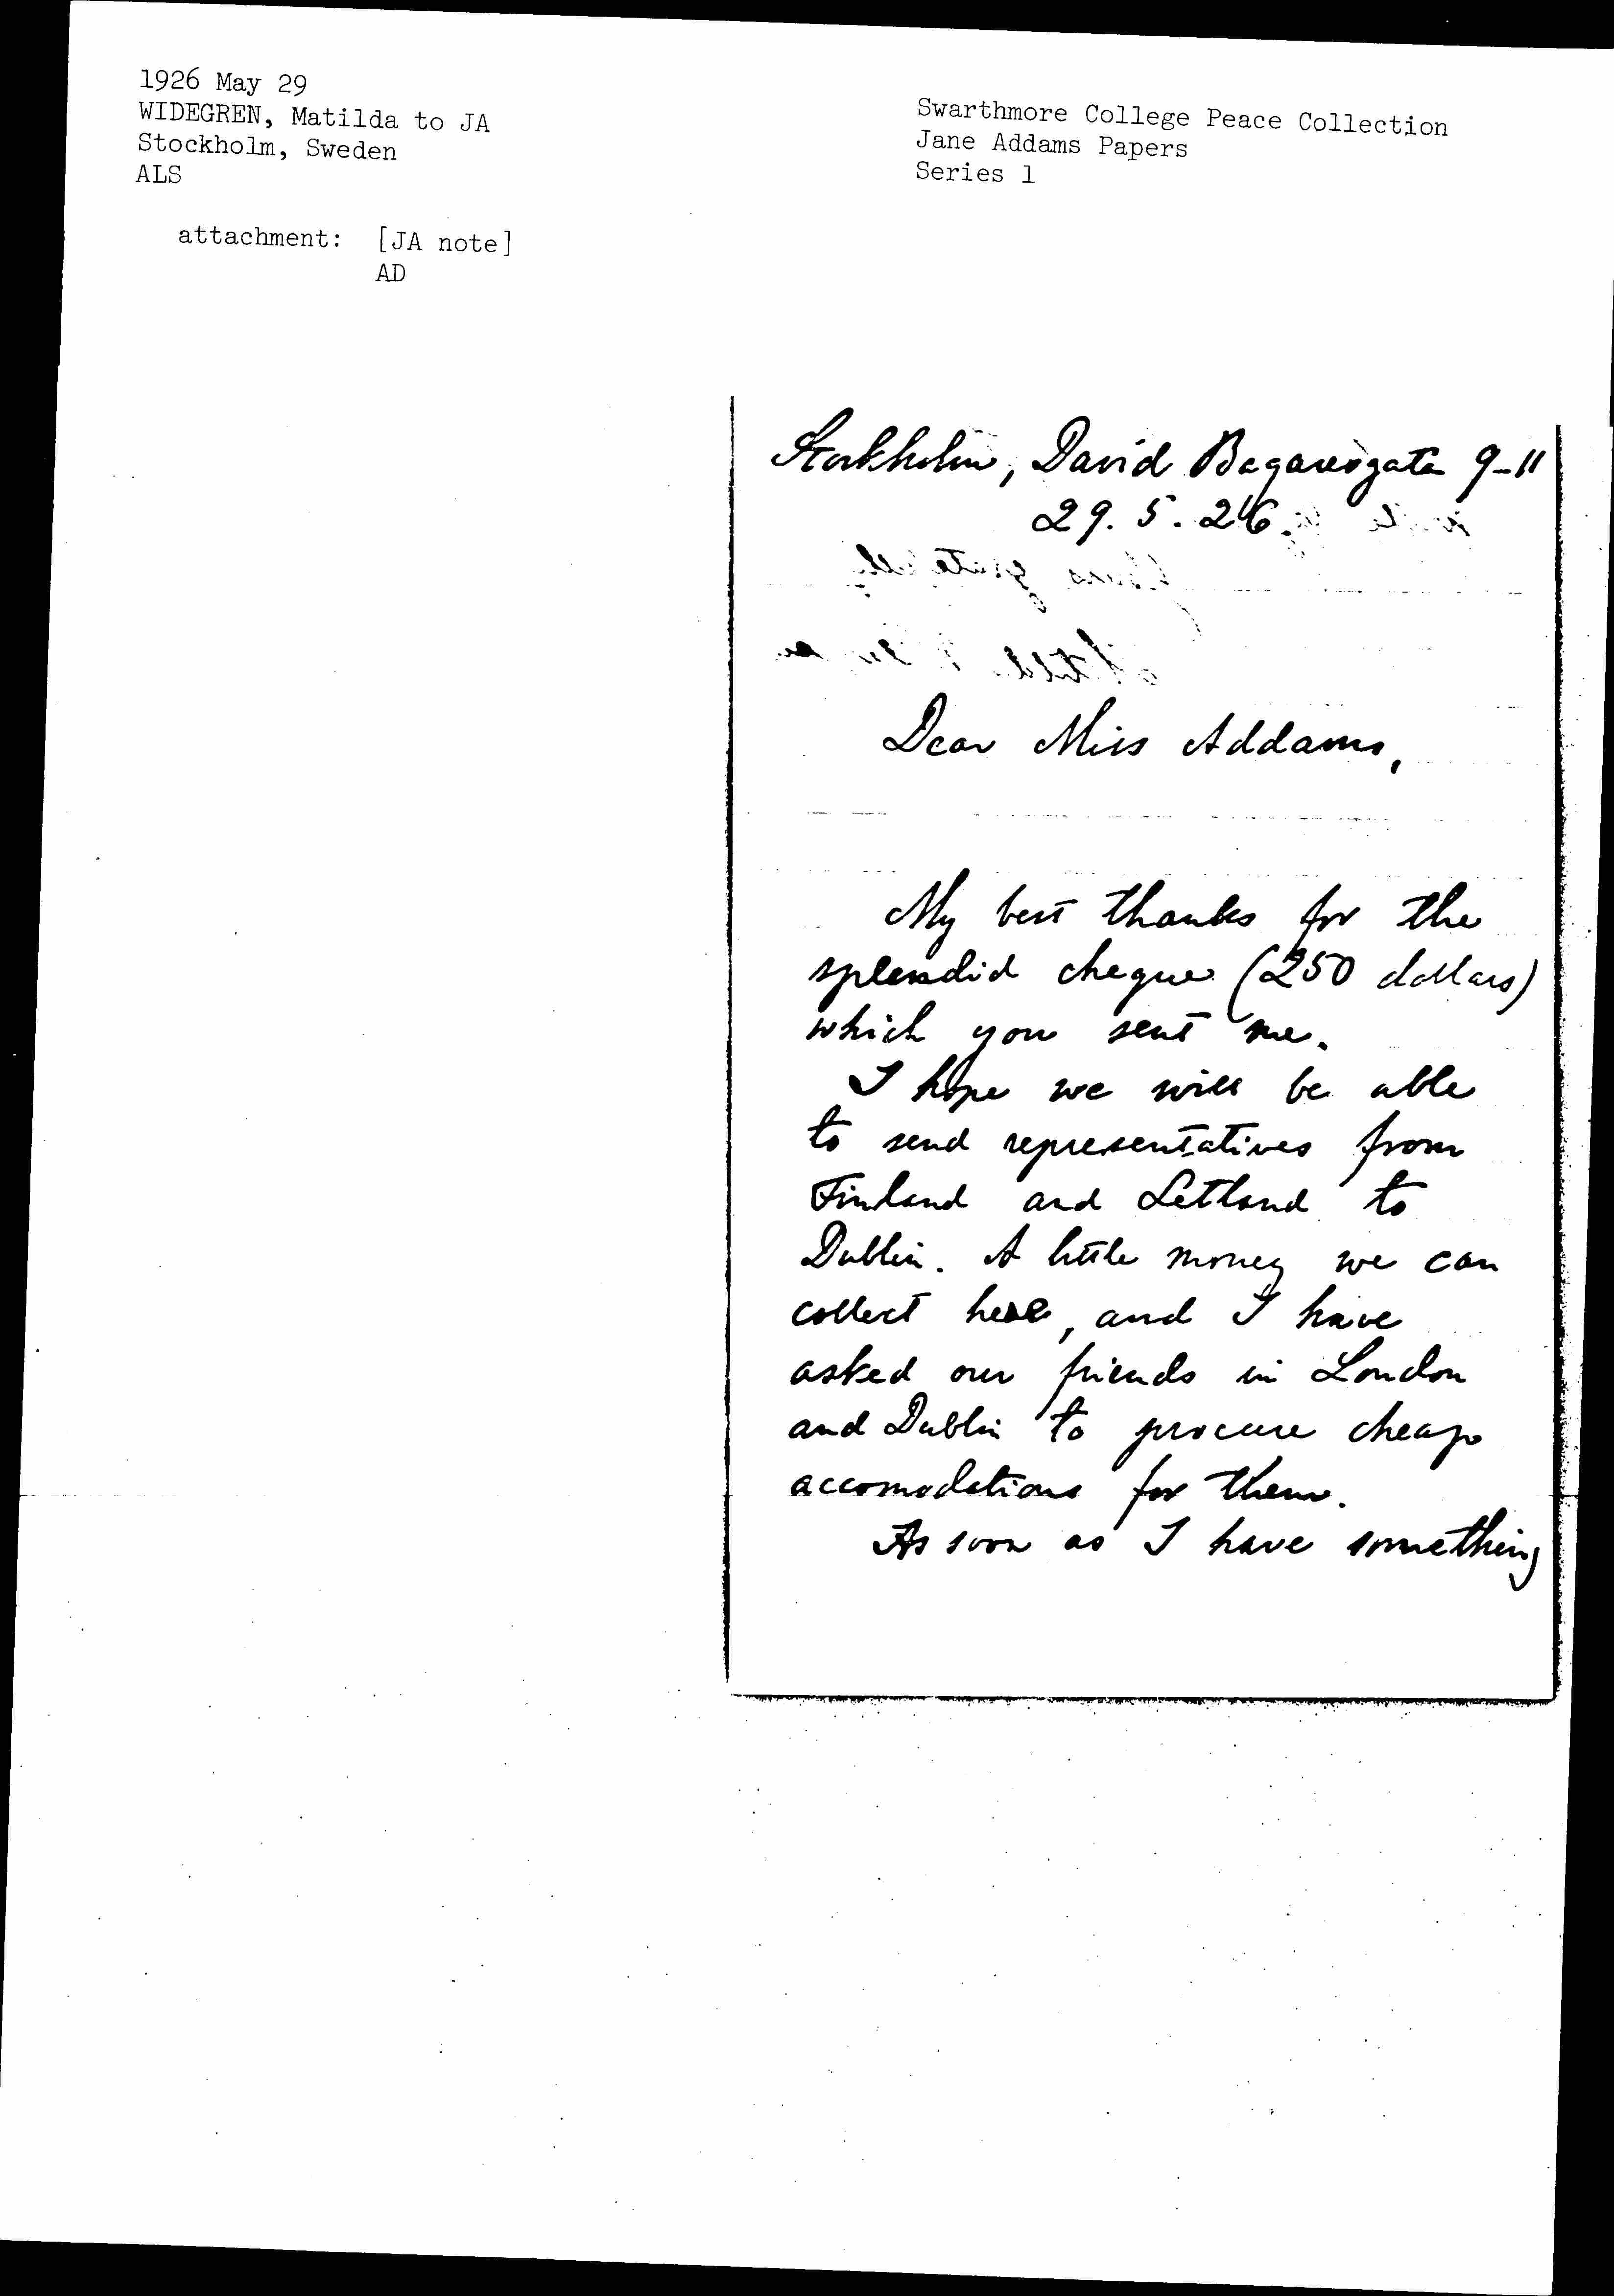 1926 May 29
WIDEGREN, Matilda to JA
Stockholm, Sweden
ALS
attachment: [JA note]
AD
Swarthmore College Peace Collection
Jane Addams Papers
Series 1
Stockholm, David Bagaresgata 9-11
29. 5. 26.
Dear Miss Addams,
My best thanks for the
splendid cheque (250 dollars)
which you sent me.
I hope we will be able
to send representatives from
Finland and Letland to
Dublin. A little money we can
collect here, and I have
asked our friends in London
and Dublin to procure cheap
accomodations for them.
As soon as I have something